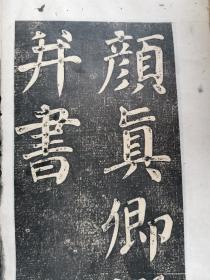 顔真卿
并書